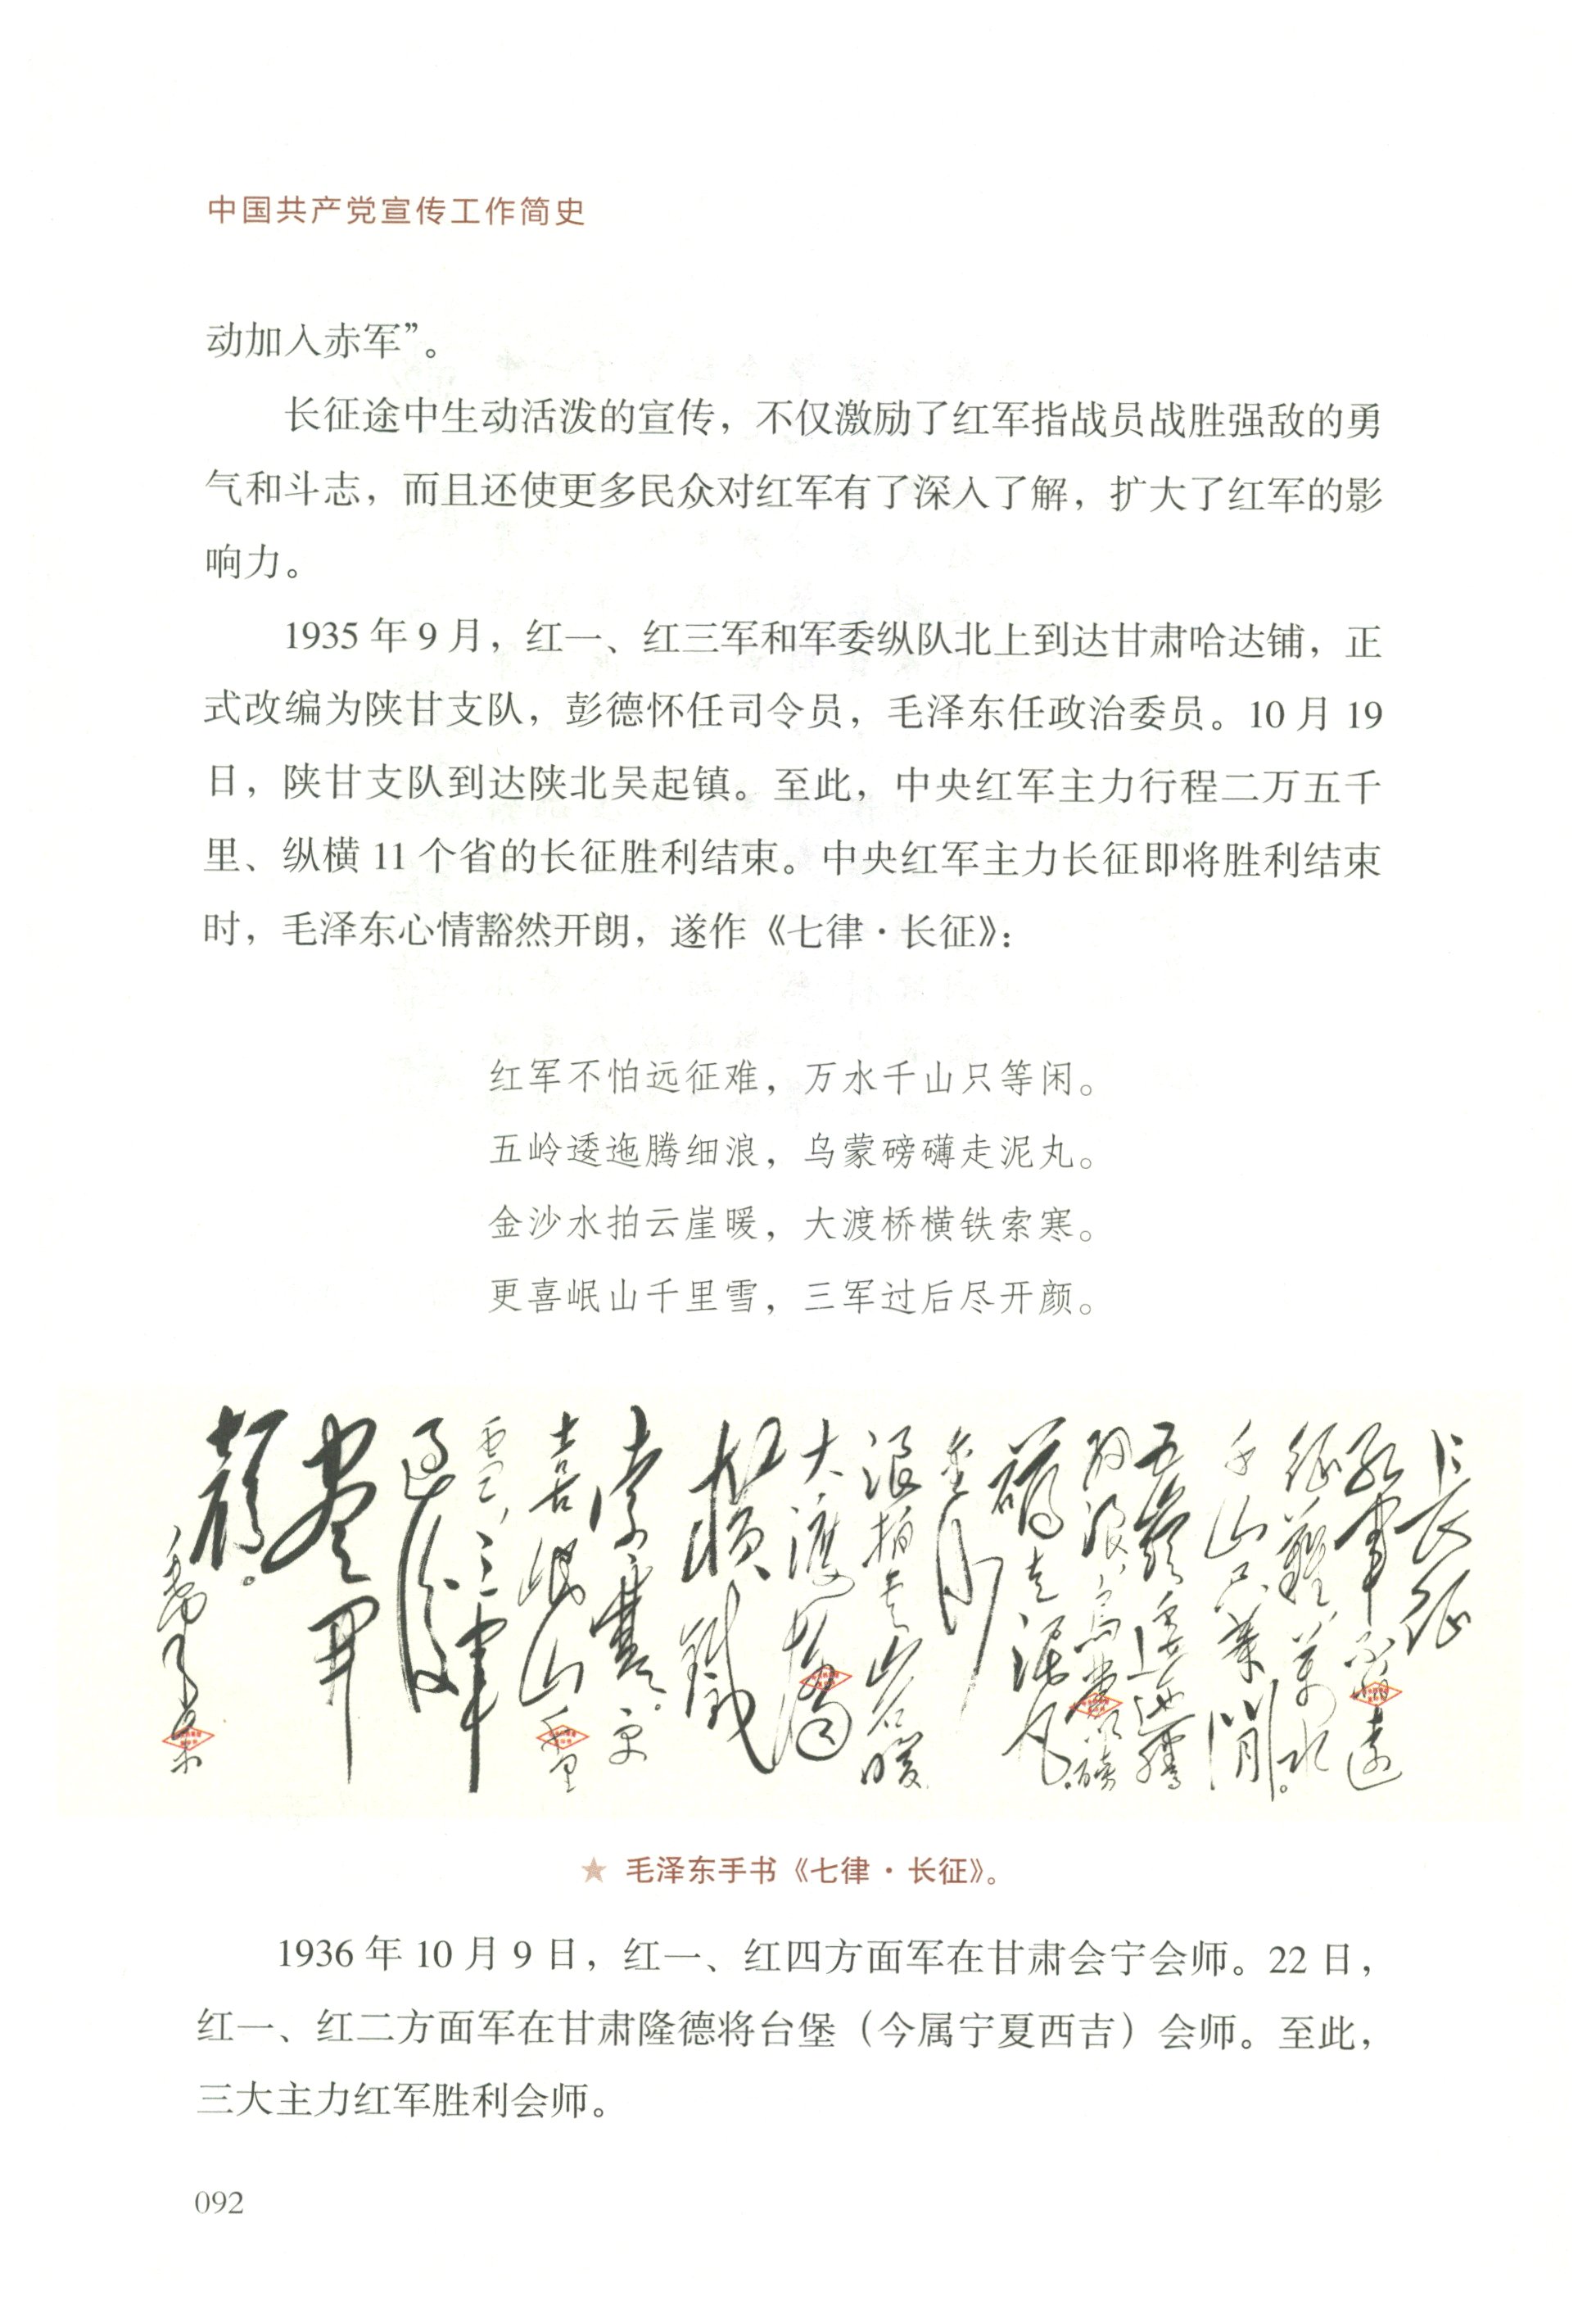 中国共产党宣传工作简史
动加入赤军”。
长征途中生动活泼的宣传，不仅激励了红军指战员战胜强敌的勇
气和斗志，而且还使更多民众对红军有了深入了解，扩大了红军的影
响力。
1935 年 9 月，红一、红三军和军委纵队北上到达甘肃哈达铺，正
式改编为陕甘支队，彭德怀任司令员，毛泽东任政治委员。10 月 19
日，陕甘支队到达陕北吴起镇。至此，中央红军主力行程二万五千
里、纵横 11 个省的长征胜利结束。中央红军主力长征即将胜利结束
时，毛泽东心情豁然开朗，遂作《七律·长征》：
红军不怕远征难，万水千山只等闲。
五岭逶迤腾细浪，乌蒙磅礴走泥丸。
金沙水拍云崖暖，大渡桥横铁索寒。
更喜岷山千里雪，三军过后尽开颜。
长征
红军不怕远
征難萬水
千山只等閒。
五嶺逶迤騰
細浪，烏蒙磅
礴走泥丸。
金沙
浪拍雲崖暖
大渡橋
橫鐵
索寒。更
喜岷山千里
雪，三軍
過後
盡開
顏。
毛澤东
★ 毛泽东手书《七律·长征》。
1936 年 10 月 9 日，红一、红四方面军在甘肃会宁会师。22 日，
红一、红二方面军在甘肃隆德将台堡（今属宁夏西吉）会师。至此，
三大主力红军胜利会师。
092